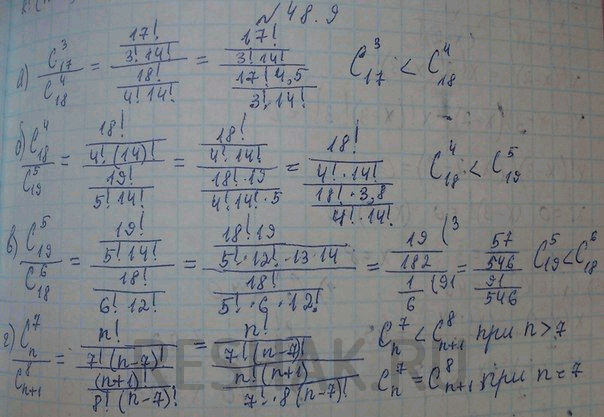 № 48.9
а) C_17^3 / C_18^4 = (17! / 3! 14!) / (18! / 4! 14!) = (17! / 3! 14!) / (17! 4,5 / 3! 14!) C_17^3 < C_18^4
б) C_18^4 / C_19^5 = (18! / 4! (14)!) / (19! / 5! 14!) = (18! / 4! 14!) / (18! · 19 / 4! 14! · 5) = (18! / 4! · 14!) / (18! · 3,8 / 4! · 14!) C_18^4 < C_19^5
в) C_19^5 / C_18^6 = (19! / 5! 14!) / (18! / 6! 12!) = (18! 19 / 5! · 12! · 13 · 14) / (18! / 5! · 6 · 12!) = (19 / 182 (3) / (1 / 6 (91) = (57 / 546) / (91 / 546) C_19^5 < C_18^6
г) C_n^7 / C_n+1^8 = (n! / 7! (n-7)!) / ((n+1)! / 8! (n-7)!) = (n! / 7! (n-7)!) / (n! (n+1) / 7! · 8 (n-7)!) C_n^7 < C_n+1^8 при n > 7
C_n^7 = C_n+1^8, при n = 7
RESHAK.RU